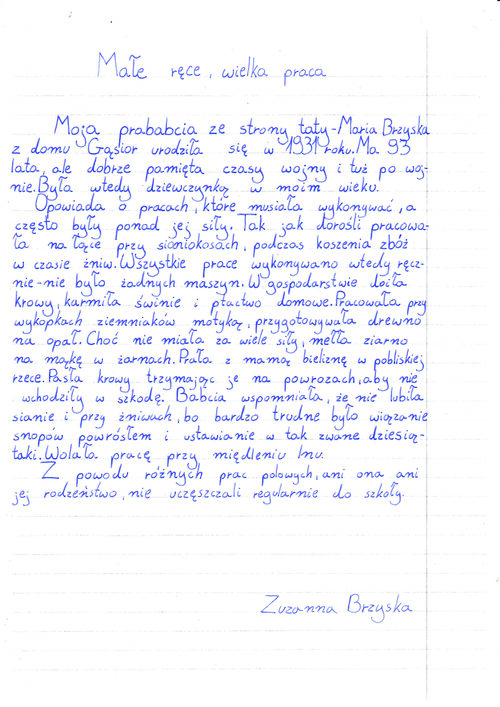 Małe ręce, wielka praca
Moja prababcia ze strony taty-Maria Brzyska
z domu Gąsior urodziła się w 1931 roku. Ma 93
lata, ale dobrze pamięta czasy wojny i tuż po woj-
nie. Była wtedy dziewczynką w moim wieku.
Opowiada o pracach, które musiała wykonywać, a
często były ponad jej siły. Tak jak dorośli pracowa-
ła na łące przy sianokosach, podczas koszenia zbóż
w czasie żniw. Wszystkie prace wykonywano wtedy ręcz-
nie-nie było żadnych maszyn. W gospodarstwie doiła
krowy, karmiła świnie i ptactwo domowe. Pracowała przy
wykopkach ziemniaków motyką, przygotowywała drewno
na opał. Choć nie miała za wiele siły, mełła ziarno
na mąkę w żarnach. Prała z mamą bieliznę w pobliskiej
rzece. Pasła krowy trzymając je na powrozach, aby nie
wchodziły w szkodę. Babcia wspomniała, że nie lubiła
sianie i przy żniwach, bo bardzo trudne było wiązanie
snopów powrósłem i ustawianie w tak zwane dziesią-
taki. Wolała pracę przy międleniu lnu.
Z powodu różnych prac polowych, ani ona ani
jej rodzeństwo, nie uczęszczali regularnie do szkoły.
Zuzanna Brzyska